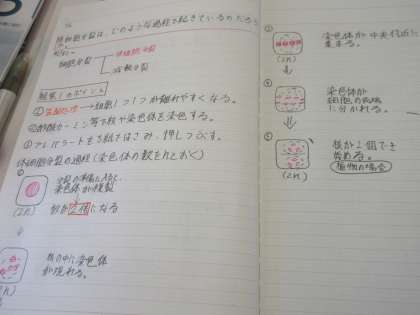 体細胞分裂は、どのような過程で起きているのだろう
細胞分裂
体細胞分裂
減数分裂
観察1のポイント
①塩酸処理→細胞1つ1つが離れやすくなる。
②酢酸カーミン等で核や染色体を染色する。
③プレパラートをろ紙ではさみ、押しつぶす。
体細胞分裂の過程(染色体の数を2nとおく)
①
染色体が複製
(2n)
数が2倍になる
↓
核の中に染色体
が現れる。
(2n)
③
染色体が中央付近に
集まる。
(2n)
↓
④
染色体が
細胞の両端
に分かれる。
⑤
核が2個でき
始める。
植物の場合
(2n)